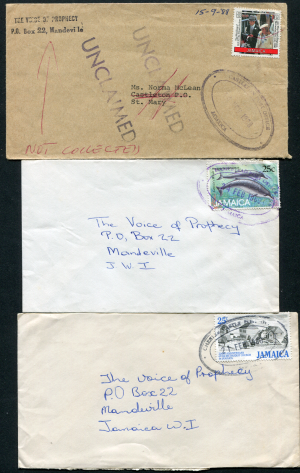 THE VOICE OF PROPHECY
P.O. Box 22, Mandeville
15-9-88
JAMAICA
UNCLAIMED
UNCLAIMED
Ms. Norma McLean
Castleton P.O.
St. Mary
NOT COLLECTED
25c
JAMAICA
JAMAICA
The Voice of Prophecy
P.O, Box 22
Mandeville
J.W.I
25c
JAMAICA
The voice of Prophecy
P.O Box 22
Mandeville
Jamaica W.I